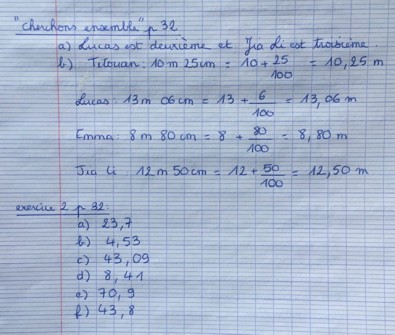 "Cherchons ensemble" p 32
a) Lucas est deuxième et Jia Li est troisième.
b) Titouan : 10 m 25 cm = 10 + 25/100 = 10,25 m
Lucas : 13 m 06 cm = 13 + 6/100 = 13,06 m
Emma : 8 m 80 cm = 8 + 80/100 = 8,80 m
Jia Li : 12 m 50 cm = 12 + 50/100 = 12,50 m
exercice 2 p 32 :
a) 23,7
b) 4,53
c) 43,09
d) 8,41
e) 70,9
f) 43,8